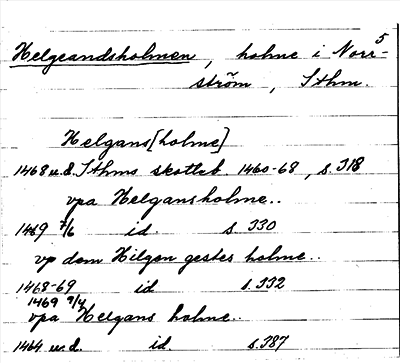 5
Helgeandsholmen, holme i Norr-
ström, Sthm.
Helgans[holme]
1468 u.d. Sthms skotteb. 1460-68, s. 318
vpa Helgansholme..
1469 7/6 id. s. 330
vp dem Hilgen gestes holme..
1468-69 id s. 332
1469 9/4
vpa Helgans holme..
1464 u.d. id. s. 387